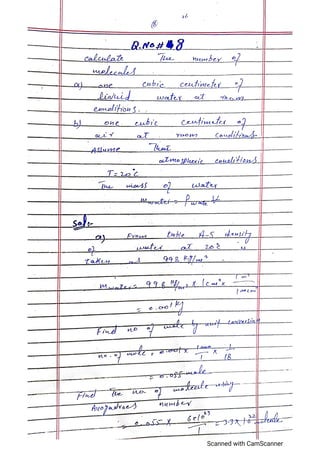 Q.No.# 8
calculate The number of
molecules
a) one cubic centimeter of
liquid water at room
conditions.
b) one cubic centimeter of
air at room conditions.
Assume that
atmospheric conditions
T = 20°C
The mass of water
m water = ρ water V
Sol:-
a) From table A-5 density
of water at 20°C is
Taken as 998 kg/m³
m water = 998 kg/m³ x 1 cm³ x 1 m³
= 0.001 kg
Find no of mole by unit conversion
no. of mole = 0.001 x 1000 / 1 x 1 / 18
= 0.055 mole
Find the no. of molecule using
Avogadroes number
= 0.055 x 6x10²³ / 1 = 3.3 x 10²²
Scanned with CamScanner